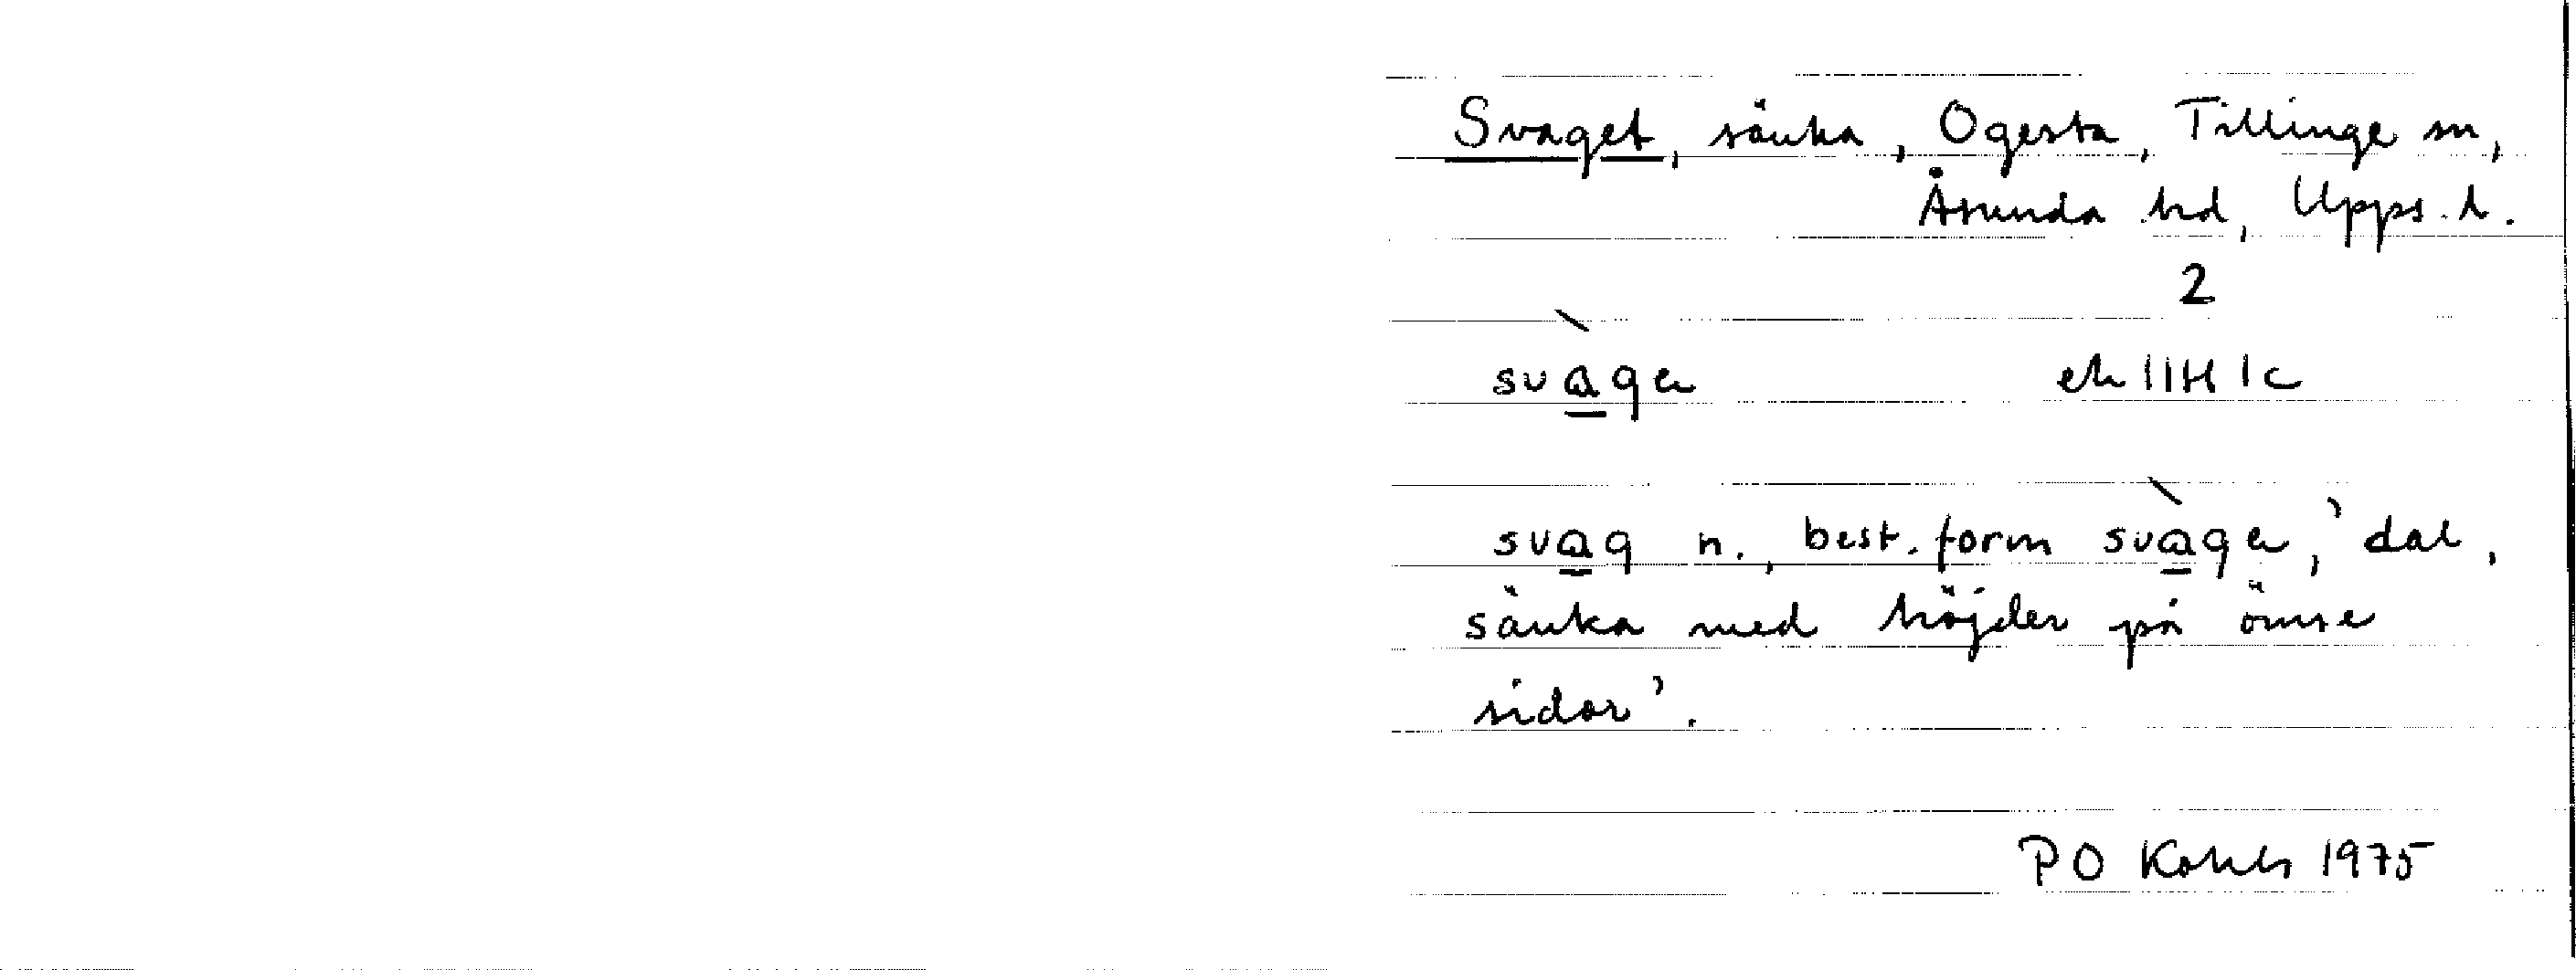 Svaget, sänka, Ogesta, Tillinge sn,
Åsunda hd, Upps. l.
2
svàge
ek 11H 1c
svag n., best. form svàge, 'dal,
sänka med höjder på ömse
sidor'.
PO 1975